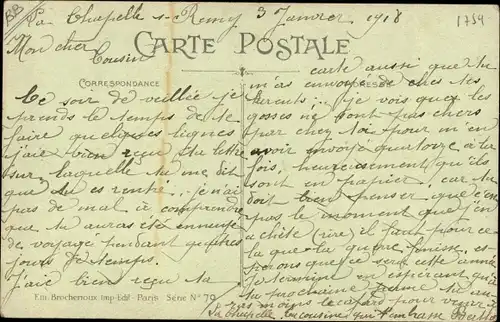 La Chapelle s-Remy 3 Janvier 1918
1754
Mon cher Cousin
CARTE POSTALE
CORRESPONDANCE
Ce soir de veillée je
prends le temps de te
faire quelques lignes
j'aie bien reçu ta lettre
sur laquelle tu me dit
que tu es rentré... je n'ai
pas de mal à comprendre
que tu auras été ennuyé
de voyager pendant
jours de temps.
J'aie bien reçu ta
carte aussi que tu
m'as envoyée de chez tes
parents... je vois que les
gosses ne sont pas chers
par chez toi pour m'en
avoir envoyé quatorze à la
fois, heureusement qu'ils
sont en papier, car tu
doit bien penser que c'est
pas le moment que j'en
achète (rire) il faut pour ce
la que la guerre finisse, es-
perons que ce sera cette année
Je termine en esperant qu'à
ta prochaine tu
auras moins le cafard pour venir à
la chapelle. ta cousine qui t'embrasse Berthe
Em. Brocherioux Imp-Edit - Paris Série N° 70